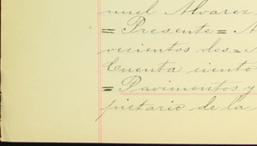 muel Alvarez
= Presente = A
vecientos dos = 
Cuenta ciento
= Pavimentos y
pietario de la